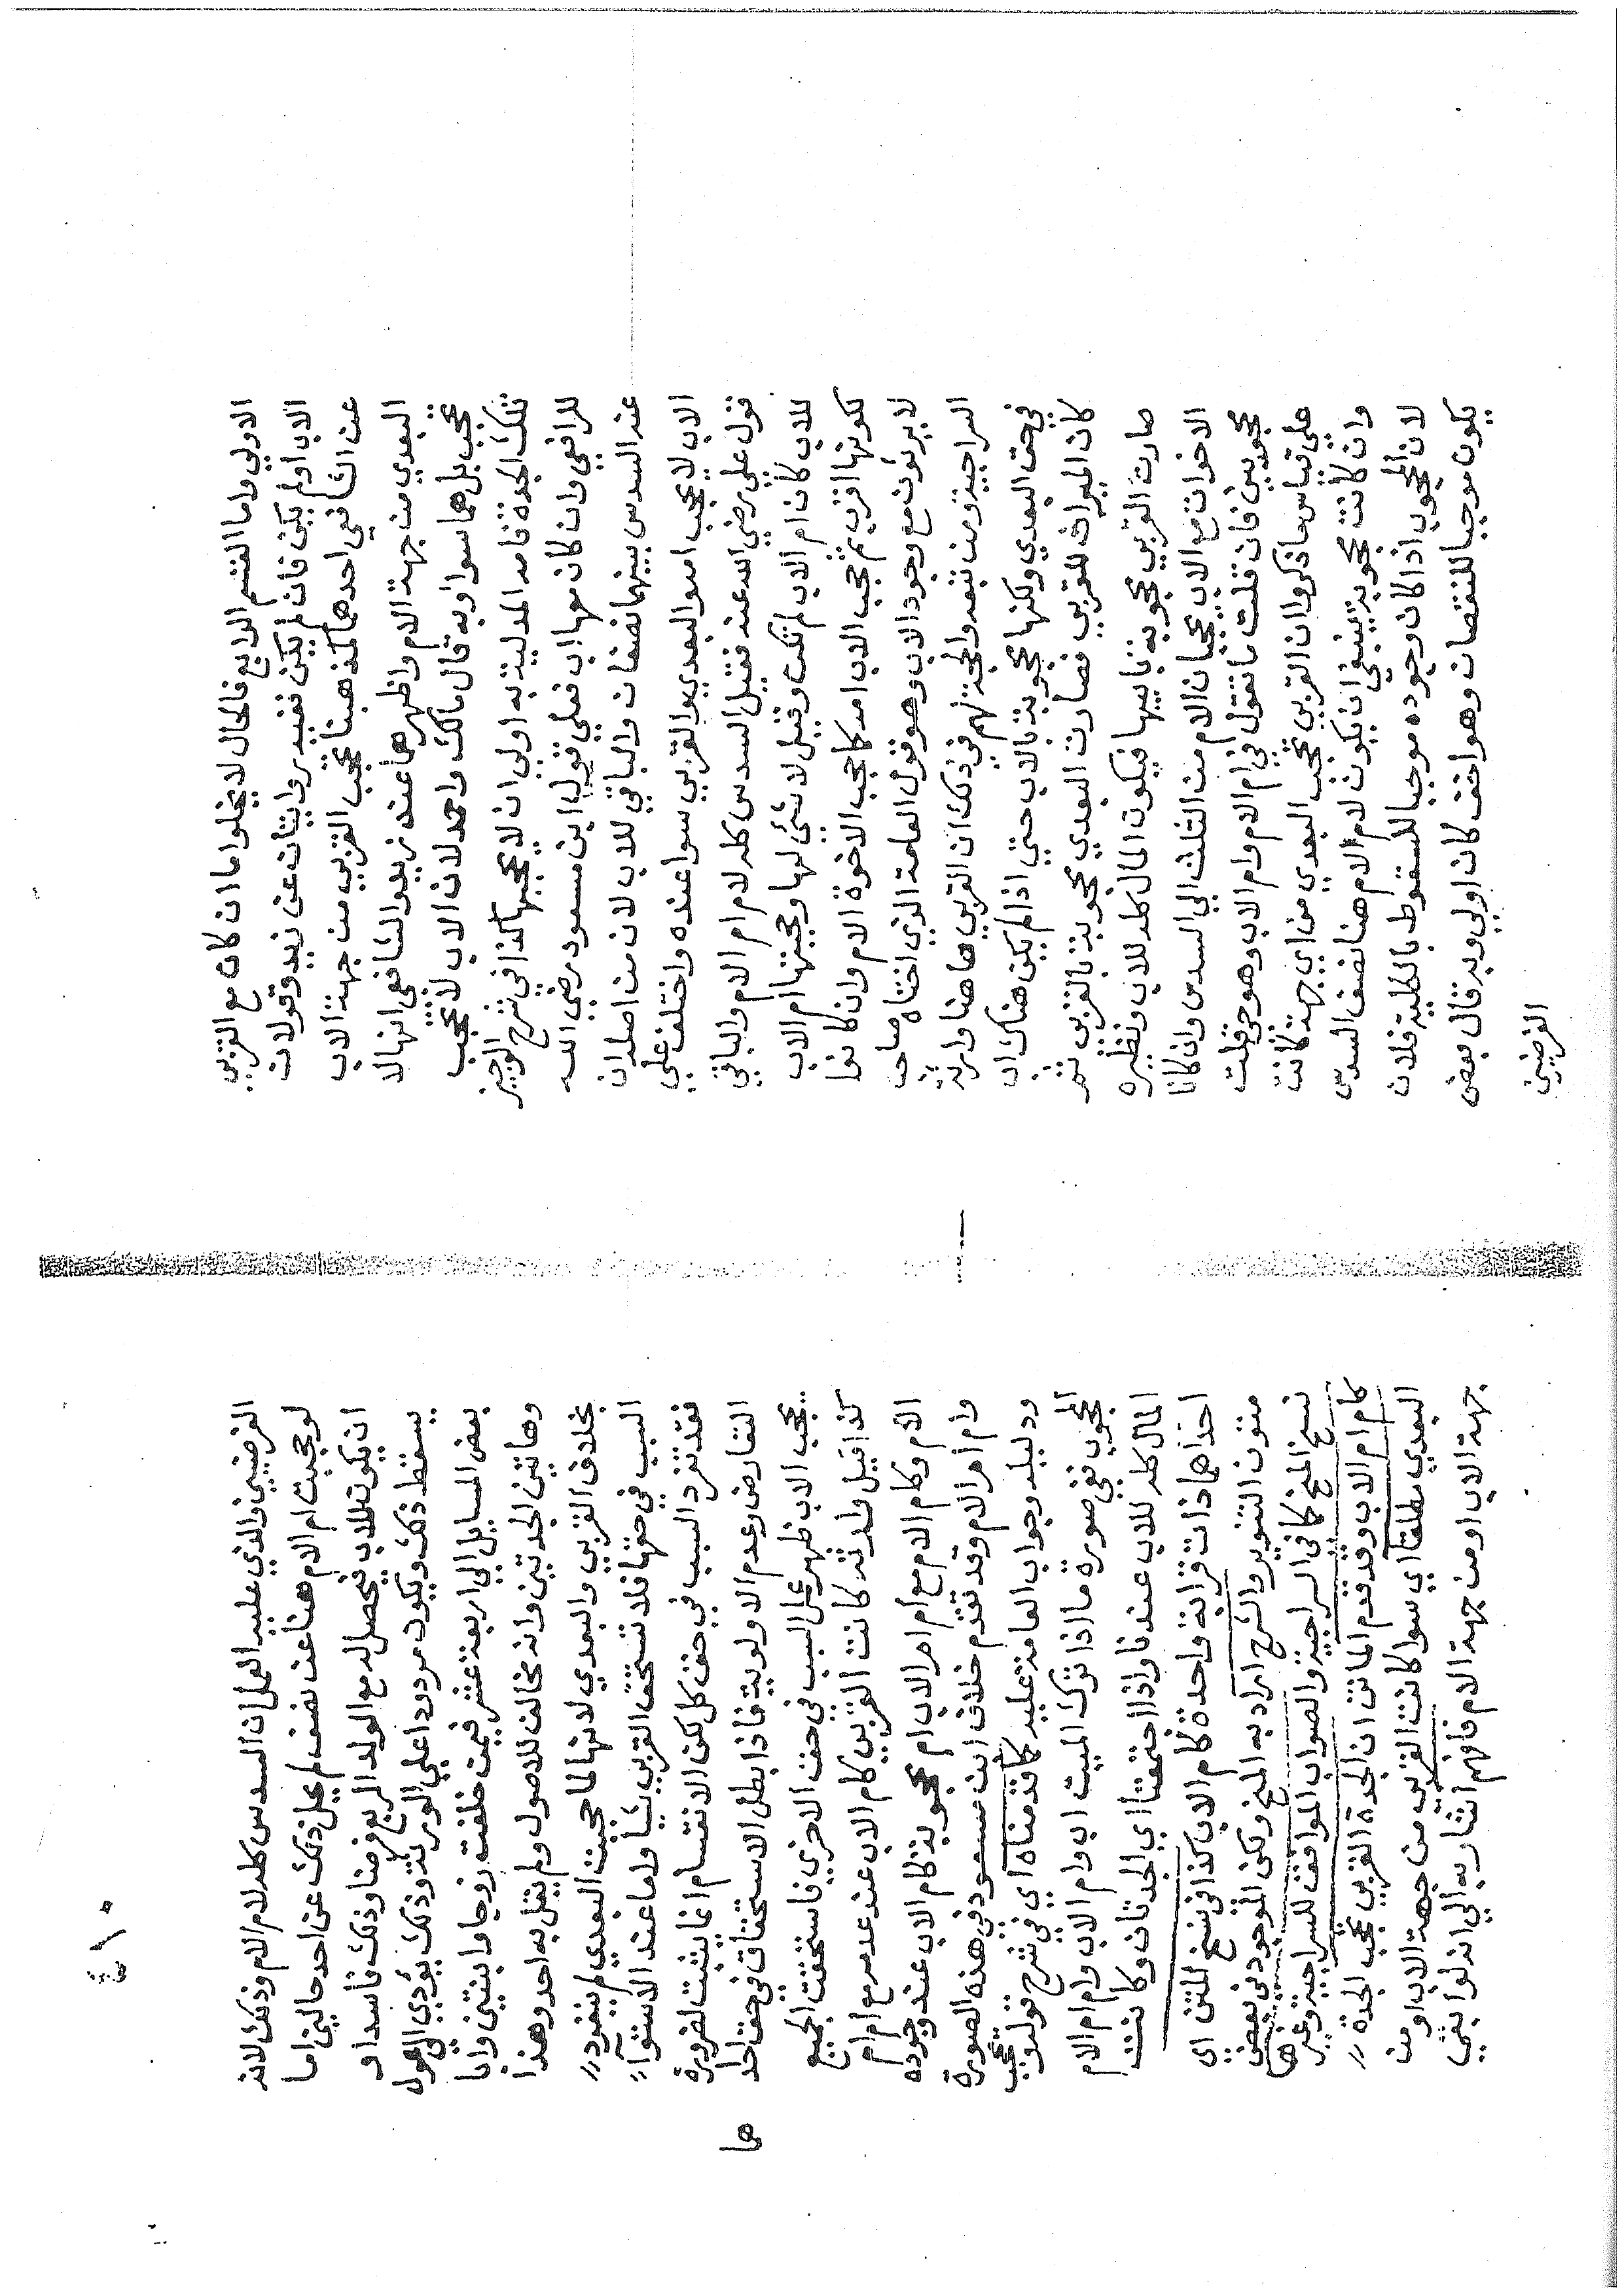 الاولي واما القسم الرابع فالحال لا يخلوا ما ان كان مع القربي
الاب او لم يكن فان لم يكن ففيه روايتان عن زيد وقولان
عن الشافعي احدهما كمذهبنا تحجب القربي من جهة الاب
البعدي من جهة الام واظهرهما عند زيد والشافعي انها لا
تحجب بل هما سوا وبه قال مالك واحمد لان الاب لا يحجب
تلك الجدة فامه المدلية به اولي ان لا تحجبها كذا في شرح الوجيز
للرافعي وان كان معها اب فعلي قول ابن مسعود رضي الله
عند السدس بينهما نصفان والباقي للاب لان من اصله ان
الاب لا يحجب امه والبعدي والقربي سوا عنده واختلف علي
قول علي رضي الله عنه فقيل السدس كله لام ام الام والباقي
للاب كأن ام الاب لم تكن وقيل لا شئ لها وحجبتها ام الاب
لكونها اقرب ثم تحجب الاب امه كما حجب الاخوة الام وان كانوا
لا يرثون مع وجود الاب وهو قول العامة الذي اختاه صاحب
السراجية ومن تبعه والحجة لهم في ذلك ان القربي هاهنا وارثة
في حق البعدي ولكنها محجوبة بالاب حتي اذا لم يكن هناك اب
كان الميراث للقربي فصارت البعدي محجوبة بالقربي ثم
صارت القربي محجوبة بابيها فيكون المال كله للاب ونظيره
الاخوان مع الاب يحجبان الام من الثلث الي السدس وان كانا
محجوبين فان قلت ما تقول في ام الام وام الاب وهو حي قلت
علي قياس ما ذكروا ان القربي تحجب البعدي من اي جهة كانت
وان كانت محجوبة ينبغي ان يكون لام الام هنا نصف السدس
لان المحجوب اذا كان وجوده موجبا للسقوط بالكلية فلان
يكون موجبا للنقصان وهو اخف كان اولي وبه قال بعض
الفرضيين
الفرضيين والذي عليه العمل ان السدس كله لام الام وذلك لانه
لو حجبت ام الام هنا عن نصف لم يخل ذلك عن احد حالين اما
ان يكون للاب فيحصل له مع الولد الربع فرضا وذلك فاسد او
يسقط ذلك ويكون مردودا علي الورثة وذلك يؤدي الي عول
بعض المسايل الي اربعة عشر فيمن خلفت زوجا وابنتين وابا
وهاتين الجدتين وانه مخالف للاصول ولم يقل به احد وهذا
بخلاف القربي والبعدي لانها لما حجبت البعدي لم ينفرد
السبب في حقها فلا تستحق القربي شيا واما عند الاستواء
فقد تفرد السبب في حق كل لكن الانقسام انما يثبت لضرورة
التعارض وعدم الاولوية فاذا بطل الاستحقاق في حق احد
هما
يحجب الاب ظهر عمل السبب في حق الاخري فاستحقت الجميع
كذا قيل وارثة كانت القربي كام الاب عند عدمه مع ام ام
الام وكام الام مع ام ام الاب ام محجوبة كام الاب عند وجوده
وام ام الام وقد تقدم خلاف ابن مسعود في هذه الصورة
ودليله وجواب العامة عليه كما قدمناه اي في شرح قوله تحجب
المحجوب ففي صورة ما اذا ترك الميت اب وام الاب وام ام الام
المال كله للاب عندنا واذا اجتمعتا اي الجدتان وكانت
احداهما ذات قرابة واحدة كام ام الاب كذا في نسخ المتن اي
متون التنوير والشرح اراد به المنح ولكن الموجود في بعض
نسخ المنح كما في السراجية والصواب الموافق للسراجية وغيرها
كام ام الاب وقد قدم الماتن ان الجدة القربي تحجب الجدة
البعدي مطلقا اي سوا كانت القربي من جهة الاب او من
جهة الاب او من جهة الام فافهم اشار به الي انه لو ابقي